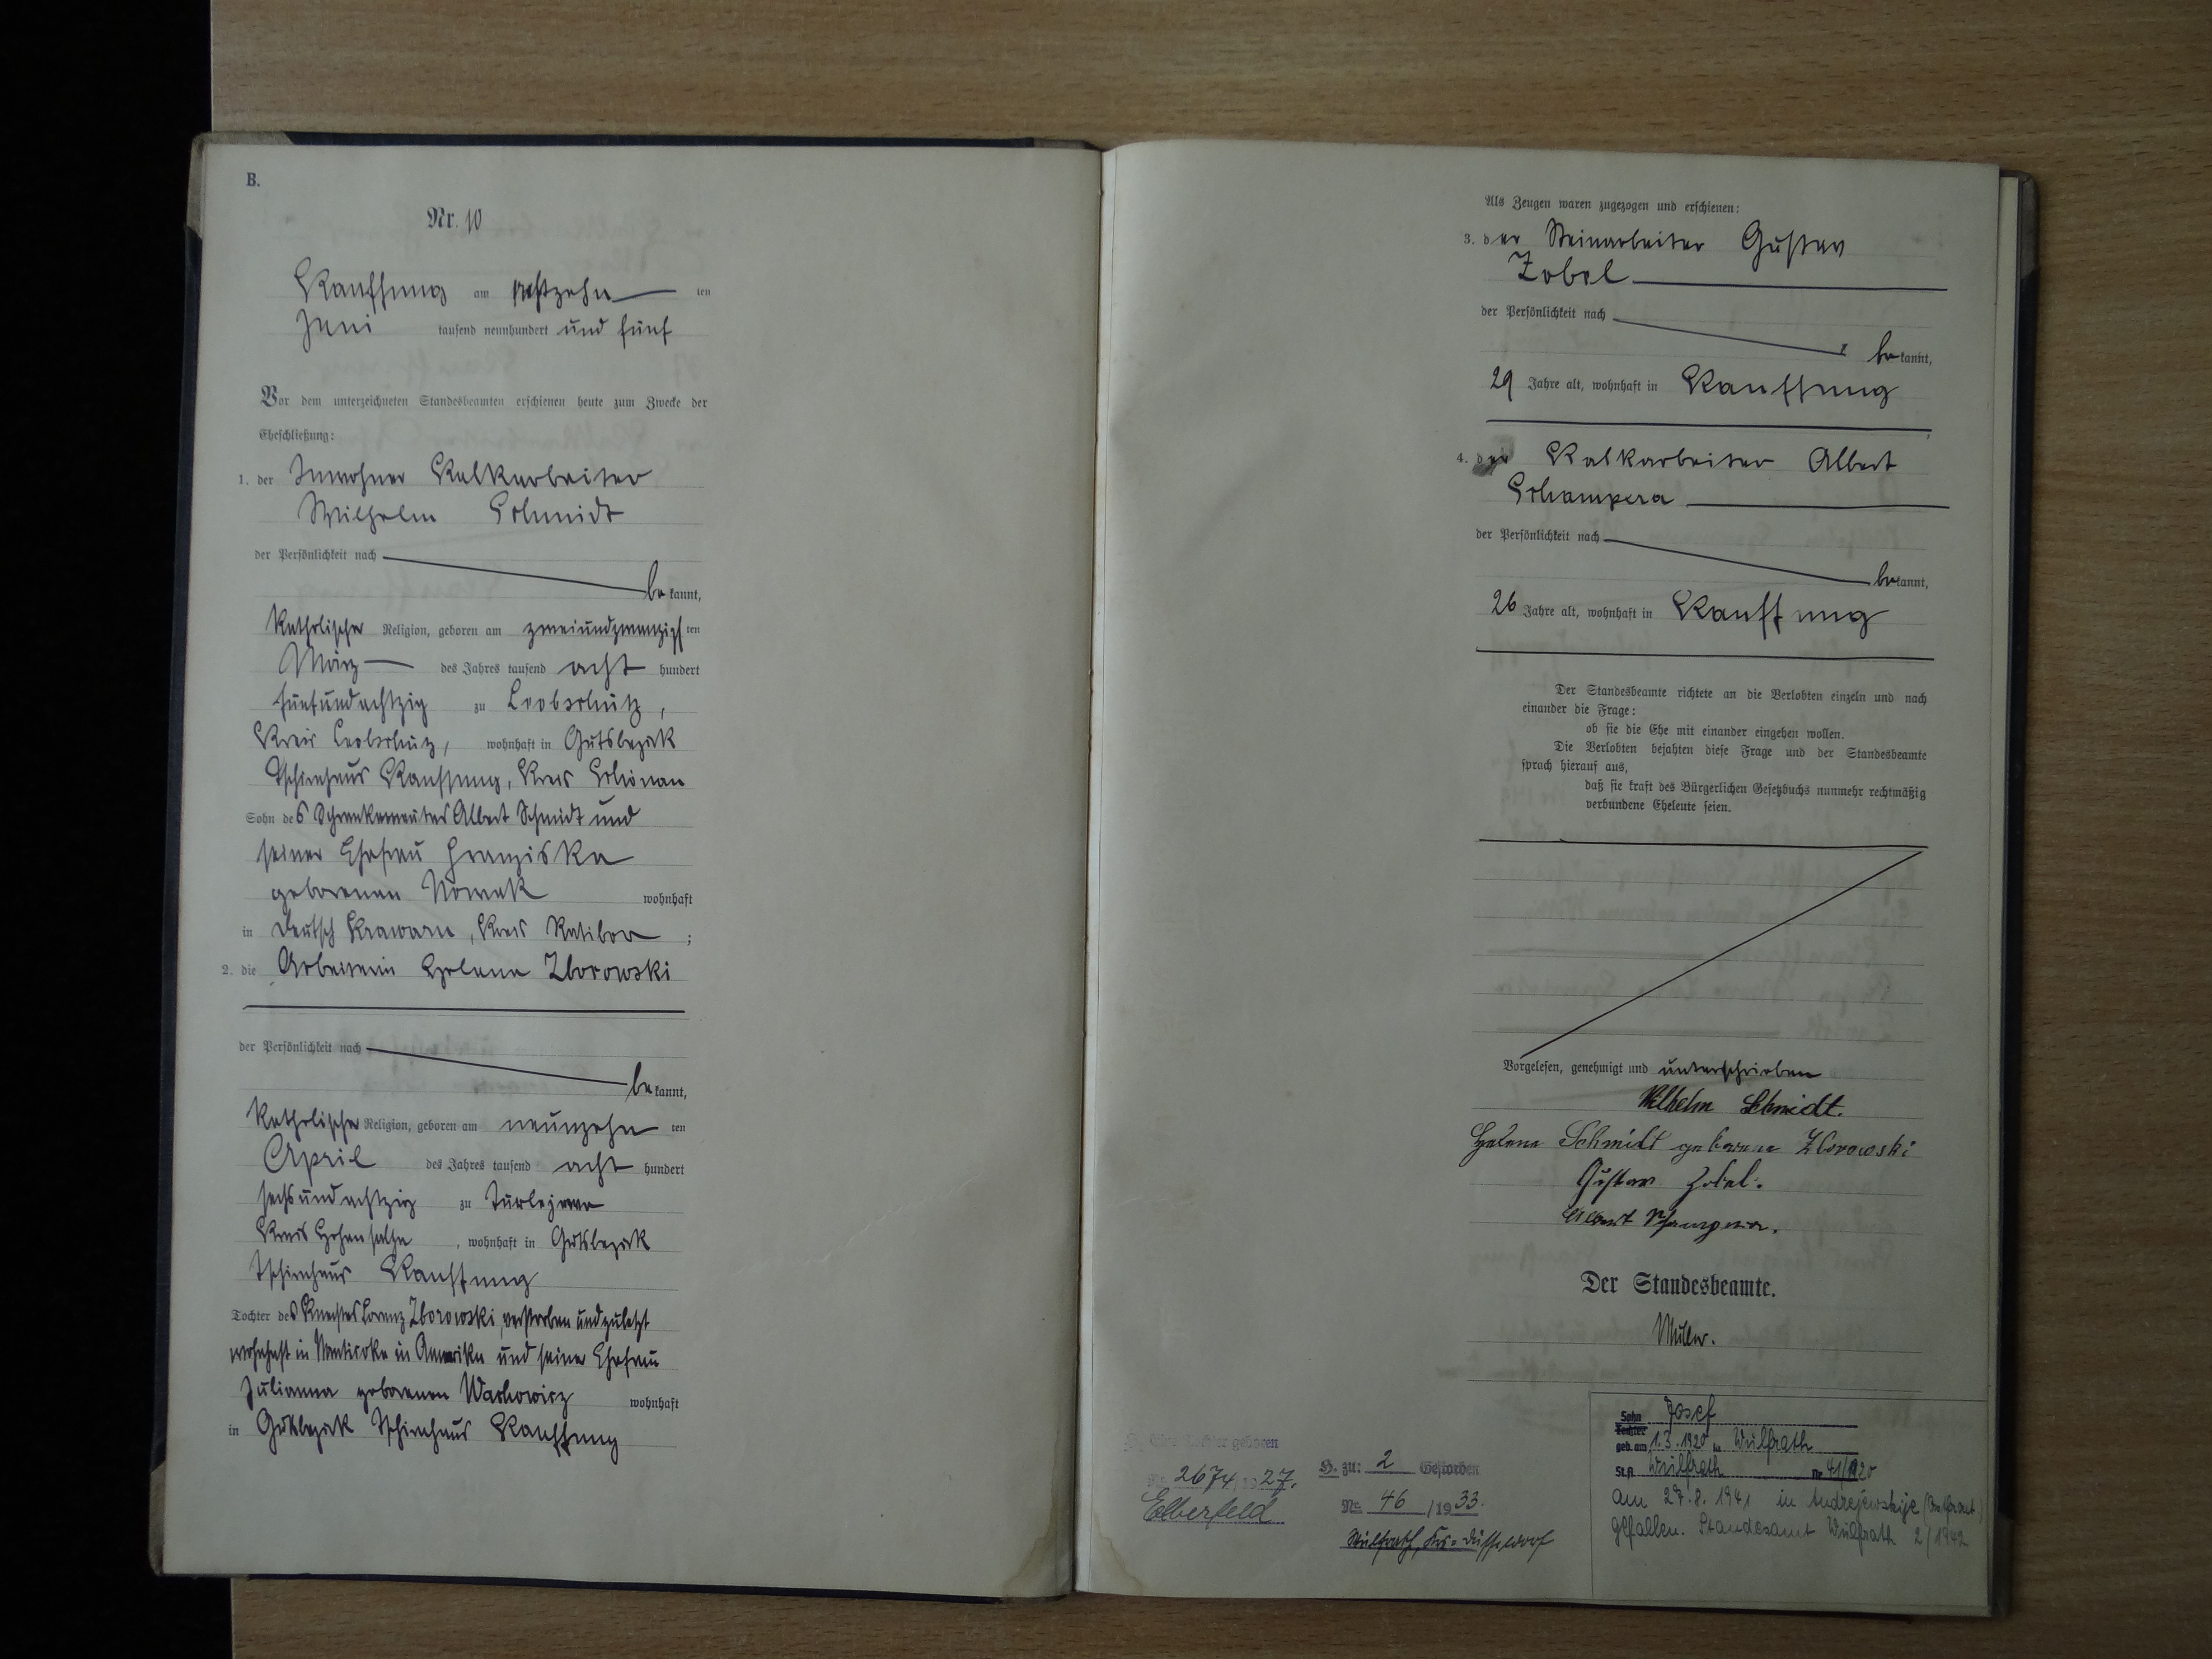 B.
Nr. 10
Kauffung am sechzehn ten
Juni tausend neunhundert und fünf
Vor dem unterzeichneten Standesbeamten erschienen heute zum Zwecke der
Eheschließung:
1. der Inwohner Kalkarbeiter
Wilhelm Schmidt
der Persönlichkeit nach
be kannt,
katholischer Religion, geboren am zweiundzwanzigs ten
März des Jahres tausend acht hundert
fünfundachtzig zu Leobschütz,
Kreis Leobschütz, wohnhaft in Gutsbezirk
Tschirnhaus Kauffung, Kreis Schönau
Sohn des Albert Schmidt und
seiner Ehefrau Franziska
geborenen Nowak wohnhaft
in Deutsch Krawarn, Kreis Ratibor ;
2. die Arbeiterin Helene Zborowski
der Persönlichkeit nach
be kannt,
katholischer Religion, geboren am neunzehn ten
April des Jahres tausend acht hundert
sechsundachtzig zu Turlejewo
Kreis Hohensalza , wohnhaft in Gutsbezirk
Tschirnhaus Kauffung
Tochter des Knechtes Lorenz Zborowski, verstorben und zuletzt
wohnhaft in Nanticoke in Amerika und seiner Ehefrau
Julianna geborenen Wachowicz wohnhaft
in Gutsbezirk Tschirnhaus Kauffung
Als Zeugen waren zugezogen und erschienen:
3. der Steinarbeiter Gustav
Zobel
der Persönlichkeit nach
be kannt,
29 Jahre alt, wohnhaft in Kauffung
4. der Kalkarbeiter Albert
Schampera
der Persönlichkeit nach
be kannt,
26 Jahre alt, wohnhaft in Kauffung
Der Standesbeamte richtete an die Verlobten einzeln und nach
einander die Frage:
ob sie die Ehe mit einander eingehen wollen.
Die Verlobten bejahten diese Frage und der Standesbeamte
sprach hierauf aus,
daß sie kraft des Bürgerlichen Gesetzbuchs nunmehr rechtmäßig
verbundene Eheleute seien.
Vorgelesen, genehmigt und unterschrieben
Wilhelm Schmidt.
Helene Schmidt geborene Zborowski
Gustav Zobel.
Albert Schampera.
Der Standesbeamte.
Müller.
Tochter geboren
Nr. 2674/1927.
Elberfeld
H. zu: 2 Gestorben
Nr. 46 /1933.
Wülfrath, Krs. Düsseldorf
Sohn Josef
Tochter
geb. am 1.3.1920 in Wülfrath
St.A. Wülfrath Nr 41/1920
am 27.8.1941 in Andrejewskije (Ostfront)
gefallen. Standesamt Wülfrath 2/1942